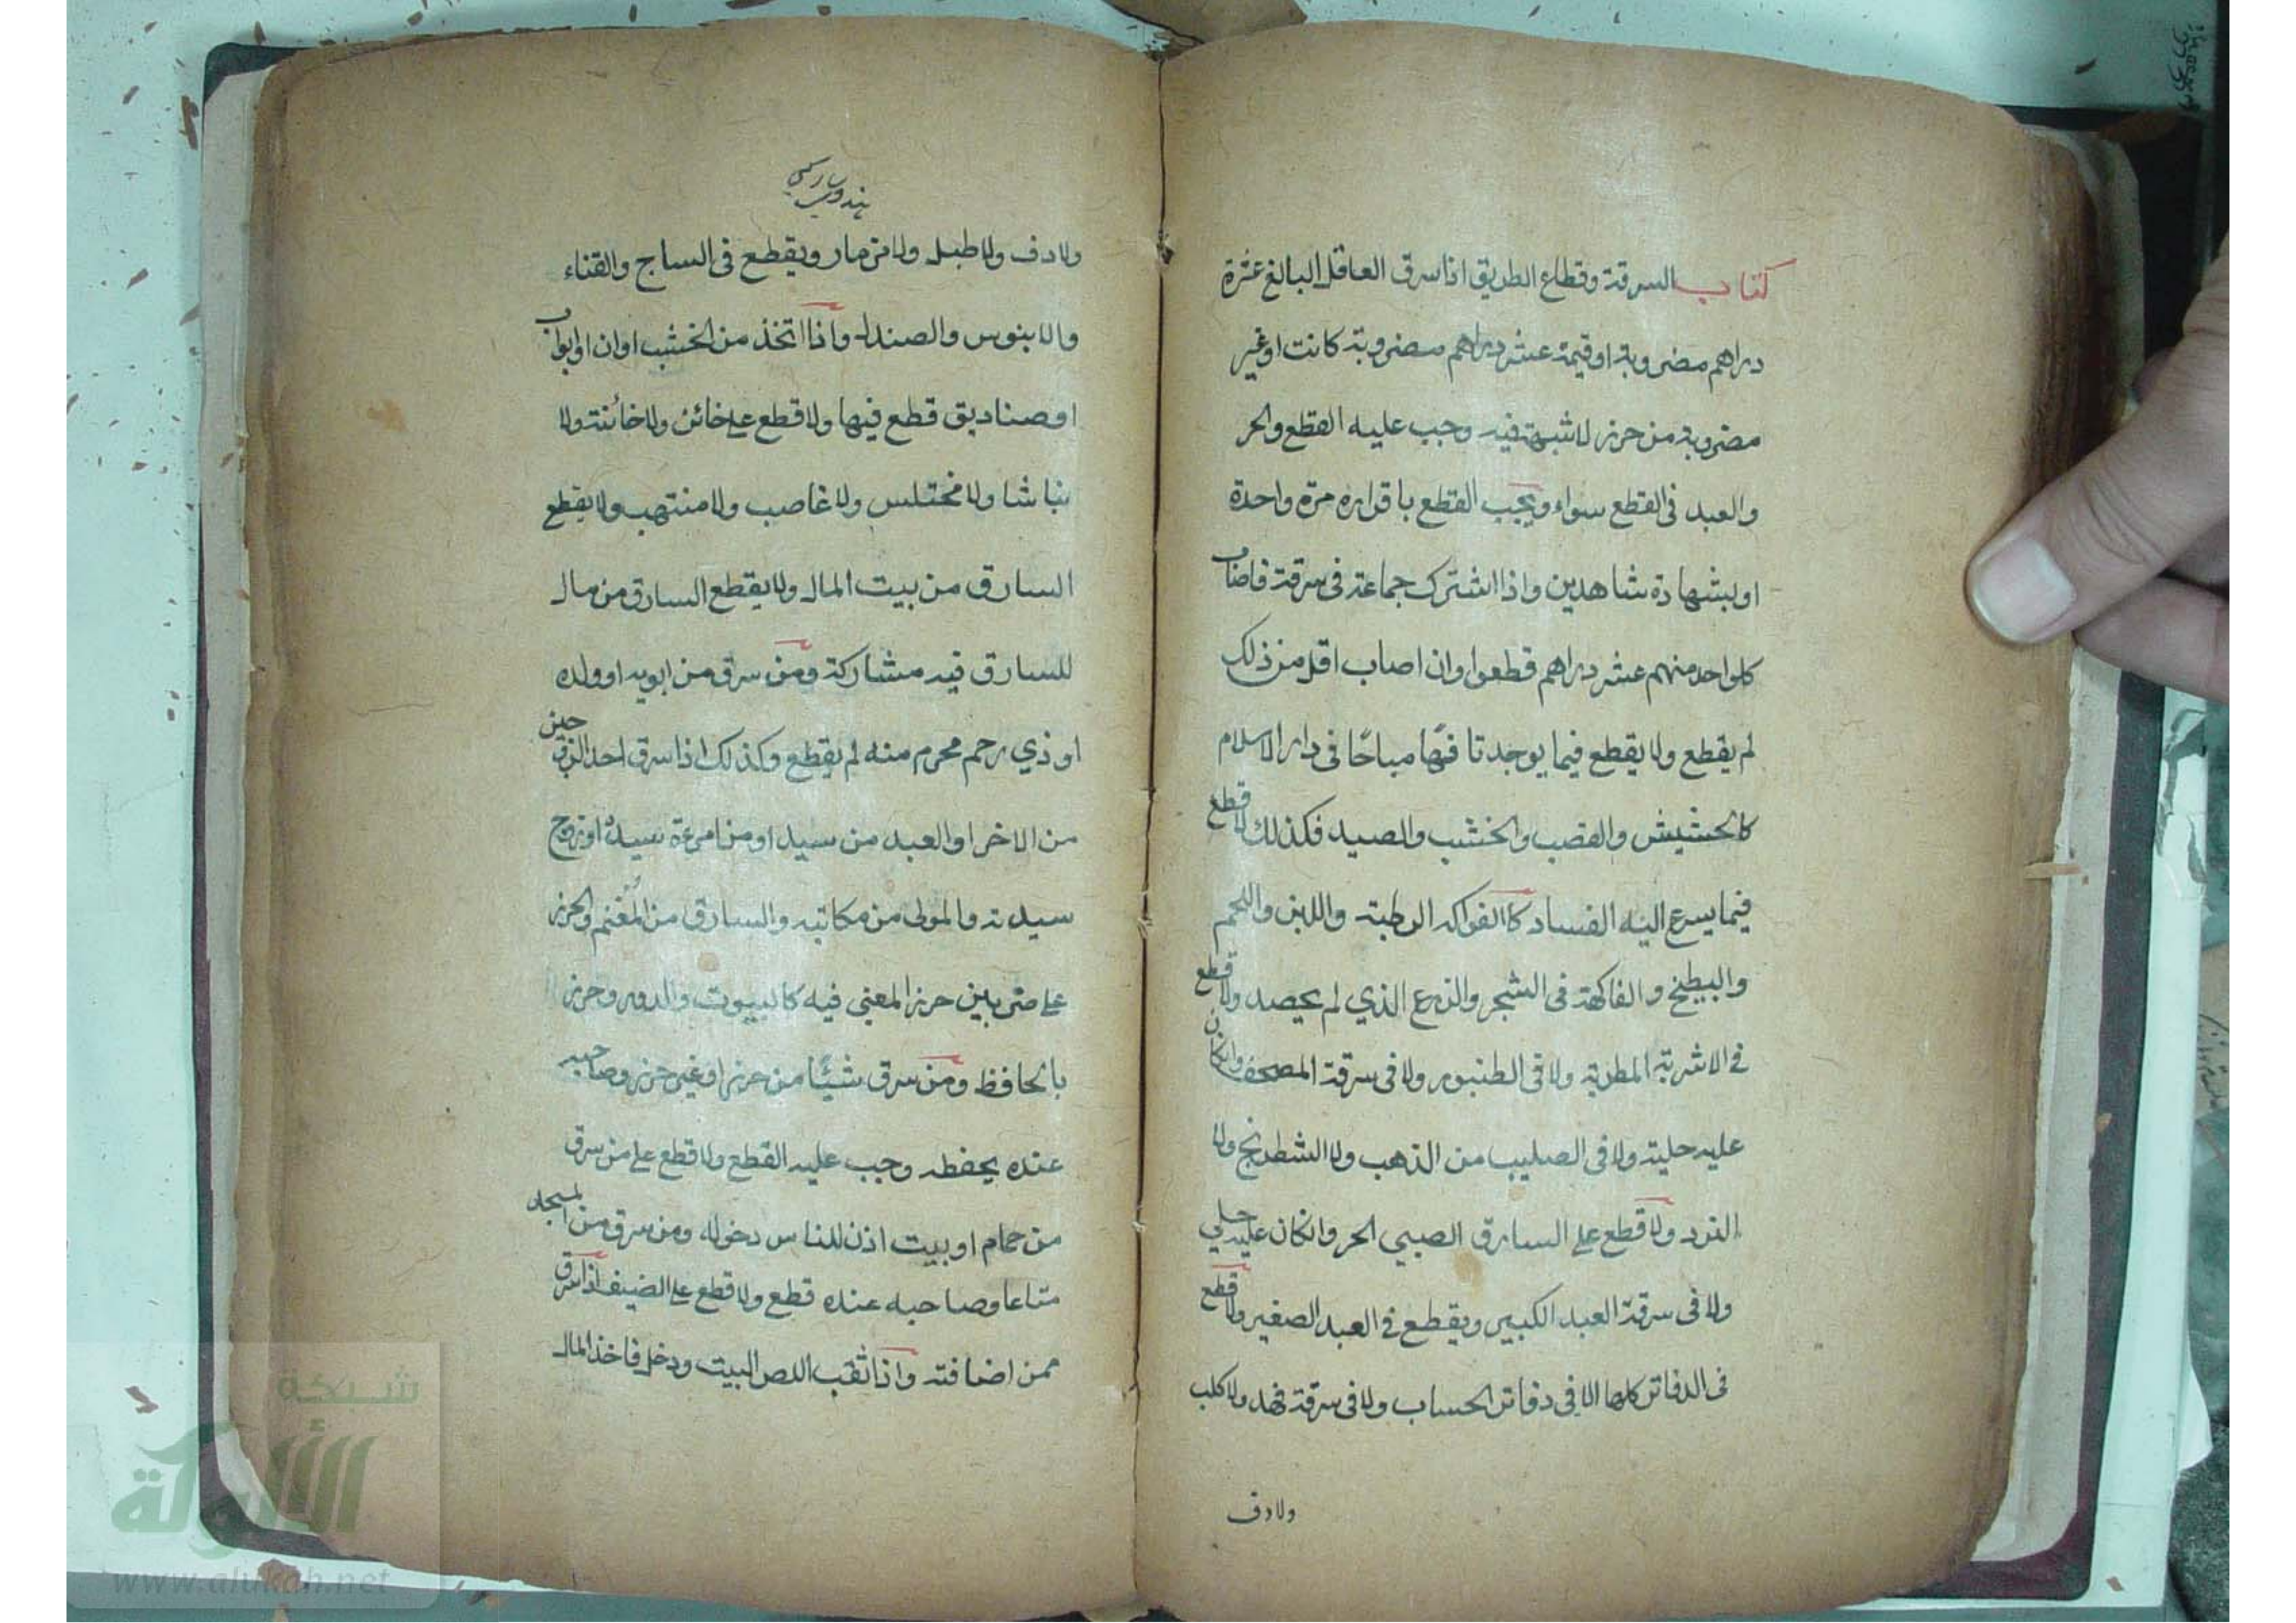 كتاب السرقة وقطاع الطريق اذا سرق العاقل البالغ عشرة
دراهم مضروبة او قيمة عشر دراهم مضروبة كانت او غير
مضروبة من حرز لا شبهة فيه وجب عليه القطع والحر
والعبد فى القطع سواء ويجب القطع باقراره مرة واحدة
او بشهادة شاهدين واذا اشترك جماعة فى سرقة فاصاب
كلواحد منهم عشر دراهم قطعوا وان اصاب اقل من ذلك
لم يقطع ولا يقطع فيما يوجد تافها مباحًا فى دار الاسلام
كالحشيش والقصب والخشب والصيد فكذلك لا قطع
فيما يسرع اليه الفساد كاالفواكه الرطبة واللبن واللحم
والبطيخ والفاكهة فى الشجر والزرع الذي لم يحصد ولا قطع
فى الاشربة المطربة ولا فى الطنبور ولا فى سرقة المصحف وانكان
عليه حلية ولا فى الصليب من الذهب ولا الشطرنج ولا
النرد ولا قطع على السارق الصبي الحر وانكان عليه حلي
ولا فى سرقة العبد الكبير ويقطع فى العبد الصغير ولا قطع
فى الدفاتر كلها الا فى دفاتر الحساب ولا فى سرقة فهد ولا كلب
ولا دف
ولا دف ولا طبل ولا مزمار ويقطع فى الساج والقناء
والابنوس والصندل واذا اتخذ من الخشب اوان او ابواب
او صناديق قطع فيها ولا قطع على خائن ولا خائنة ولا
نباشا ولا مختلس ولا غاصب ولا منتهب ولا يقطع
السارق من بيت المال ولا يقطع السارق من مال
للسارق فيه مشاركة ومن سرق من ابويه او ولده
او ذي رحم محرم منه لم يقطع وكذلك اذا سرق احد الزوجين
من الاخر او العبد من سيد او من امرءة سيده او زوج
سيدته والمولى من مكاتبه والسارق من المغنم والحرز
على ضربين حرز المعنى فيه كالبيوت والدور وحرز
بالحافظ ومن سرق شيئًا من حرز او غير حرز وصاحبه
عنده يحفظه وجب عليه القطع ولا قطع على من سرق
من حمام او بيت اذن للناس دخوله ومن سرق من المسجد
متاعا وصاحبه عنده قطع ولا قطع على الضيف اذا سرق
ممن اضافته واذا ثقب اللص البيت ودخل فاخذ المال
شبكة
الألوكة
www.alukah.net